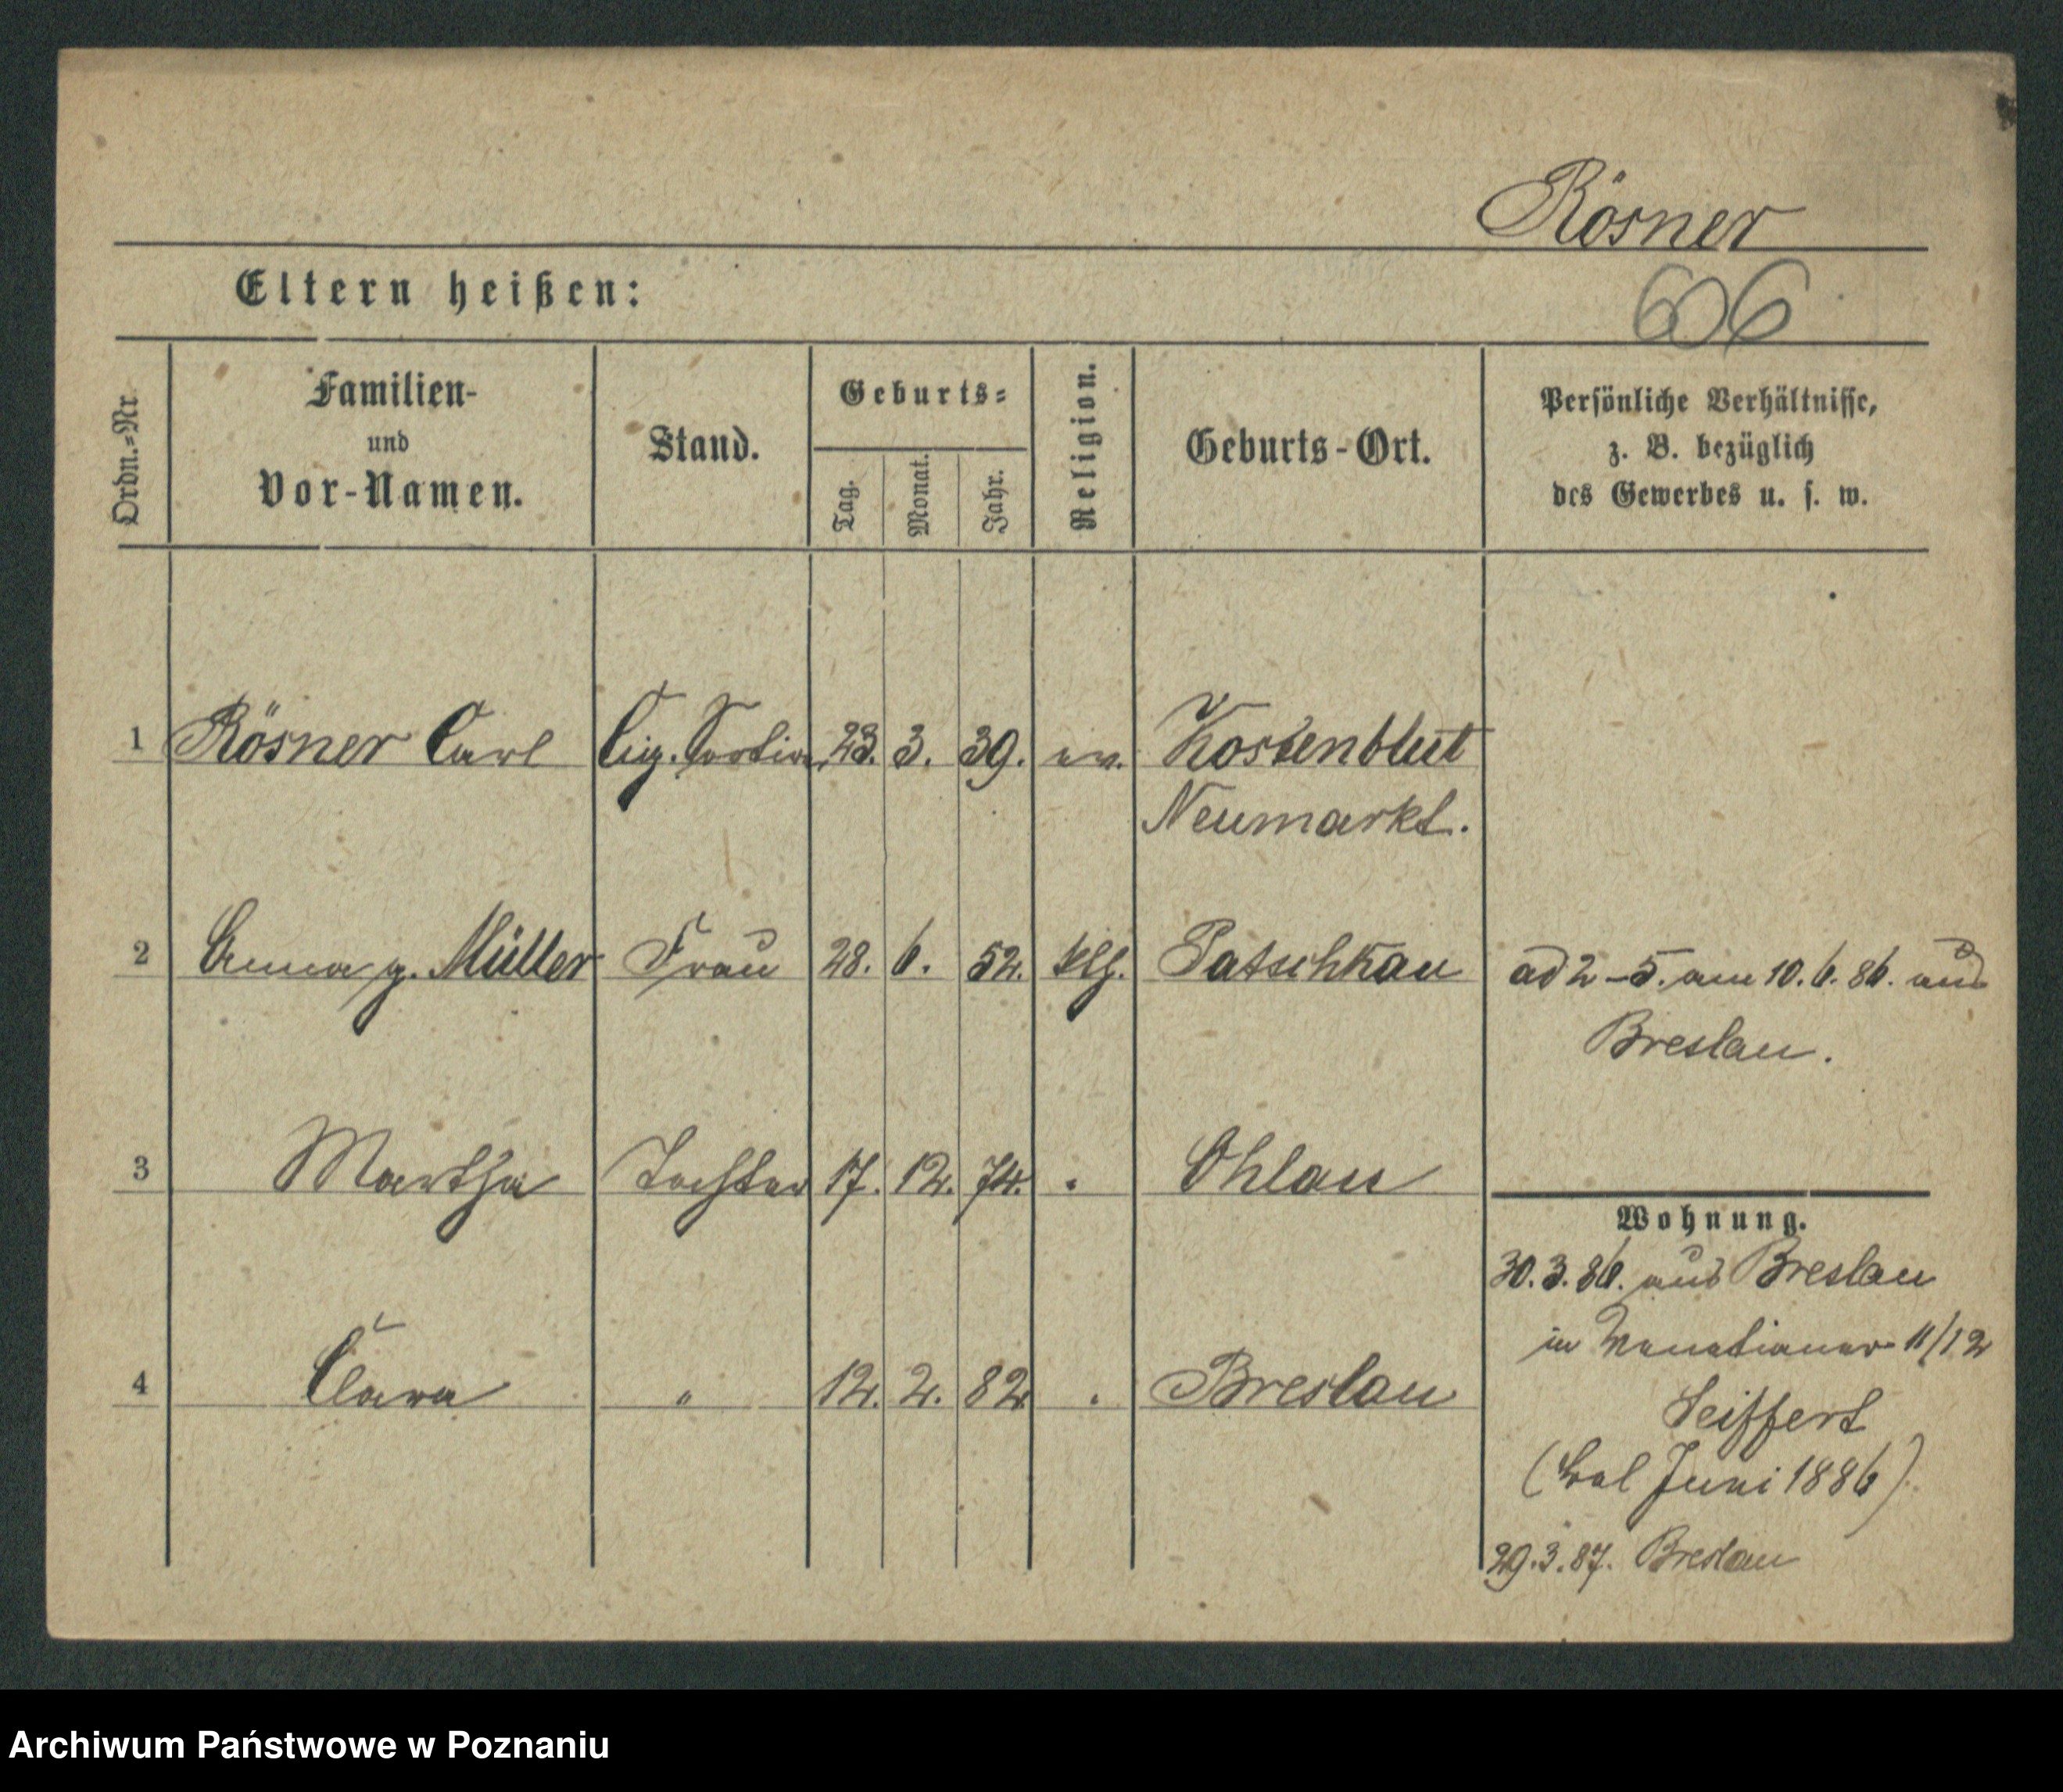 Rösner
606
Eltern heißen:
Ordn.=Nr. Familien- und Vor-Namen. Stand. Geburts= Tag. Monat. Jahr. Religion. Geburts-Ort. Persönliche Verhältnisse, z. B. bezüglich des Gewerbes u. s. w.
1 Rösner Carl Cig. Sortirer 23. 3. 39. ev. Kostenblut
Neumarkt.
2 Anna g. Müller Frau 28. 6. 52. klg. Patschkau ad 2-5. am 10. 6. 86. aus
Breslau.
3 Martha Tochter 17. 12. 74. " Ohlau
Wohnung.
30. 3. 86. aus Breslau
in Venetianer 11/12
4 Clara " 12. 2. 82 " Breslau
Seiffert
(Juni 1886).
29. 3. 87. Breslau
Archiwum Państwowe w Poznaniu